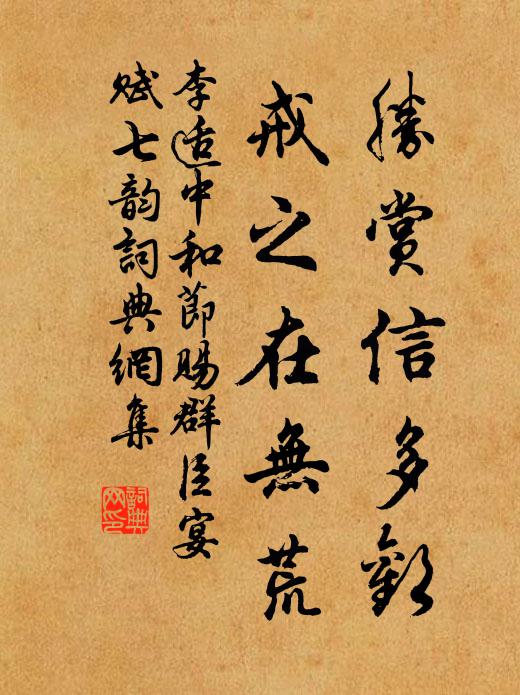 勝賞信多歡
戒之在無荒
李适中和節賜群臣宴
賦七韵詞典網集
詞典网印